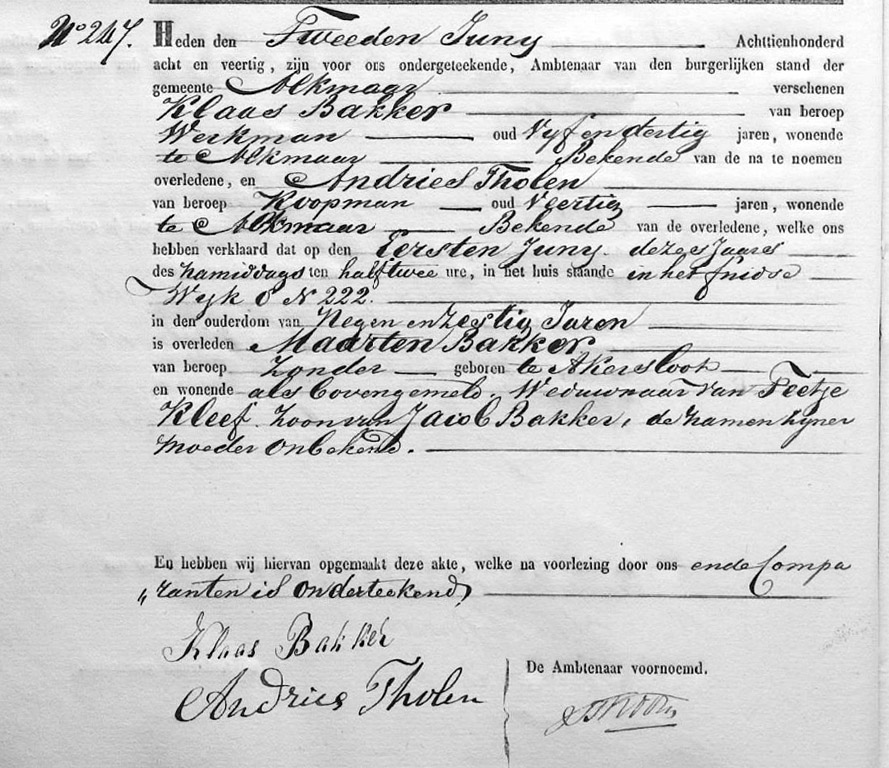 No 247.
Heden den Tweeden Juny Achttienhonderd
acht en veertig, zijn voor ons ondergeteekende, Ambtenaar van den burgerlijken stand der
gemeente Alkmaar verschenen
Klaas Bakker van beroep
Werkman oud Vyf en dertig jaren, wonende
te Alkmaar Bekende van de na te noemen
overledene, en Andries Tholen
van beroep Koopman oud Veertig jaren, wonende
te Alkmaar Bekende van de overledene, welke ons
hebben verklaard dat op den Eersten Juny dezes Jaars
des namiddags ten half twee ure, in het huis staande in het
Wyk C N 222.
in den ouderdom van Negen en zestig Jaren
is overleden Maarten Bakker
van beroep Zonder geboren te Akersloot
en wonende als bovengemeld. Weduwnaar van Teetje
Kleef. Zoon van Jacob Bakker, de namen zyner
moeder onbekend.
En hebben wij hiervan opgemaakt deze akte, welke na voorlezing door ons en de Compa
„ranten is onderteekend,
Klaas Bakker
Andries Tholen
De Ambtenaar voornoemd.